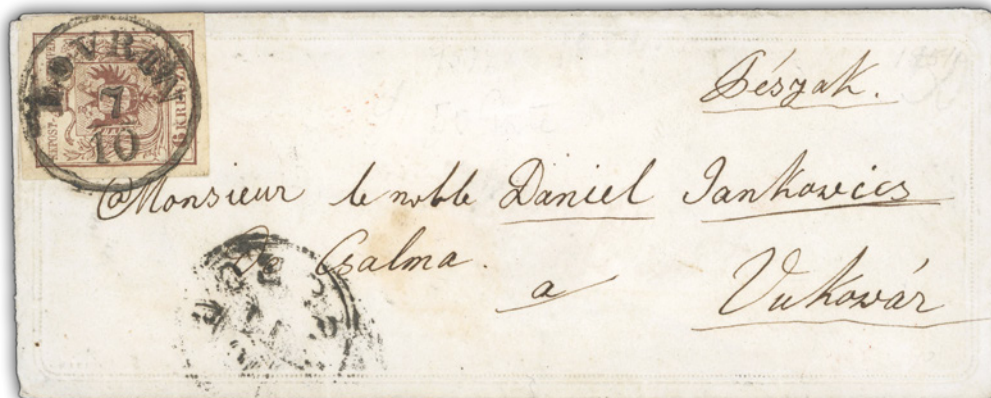 LOVRIN
7
10
6 KREUZER
Bészak.
Monsieur le noble Daniel Jankovics
De Csalma.
a Vukovár